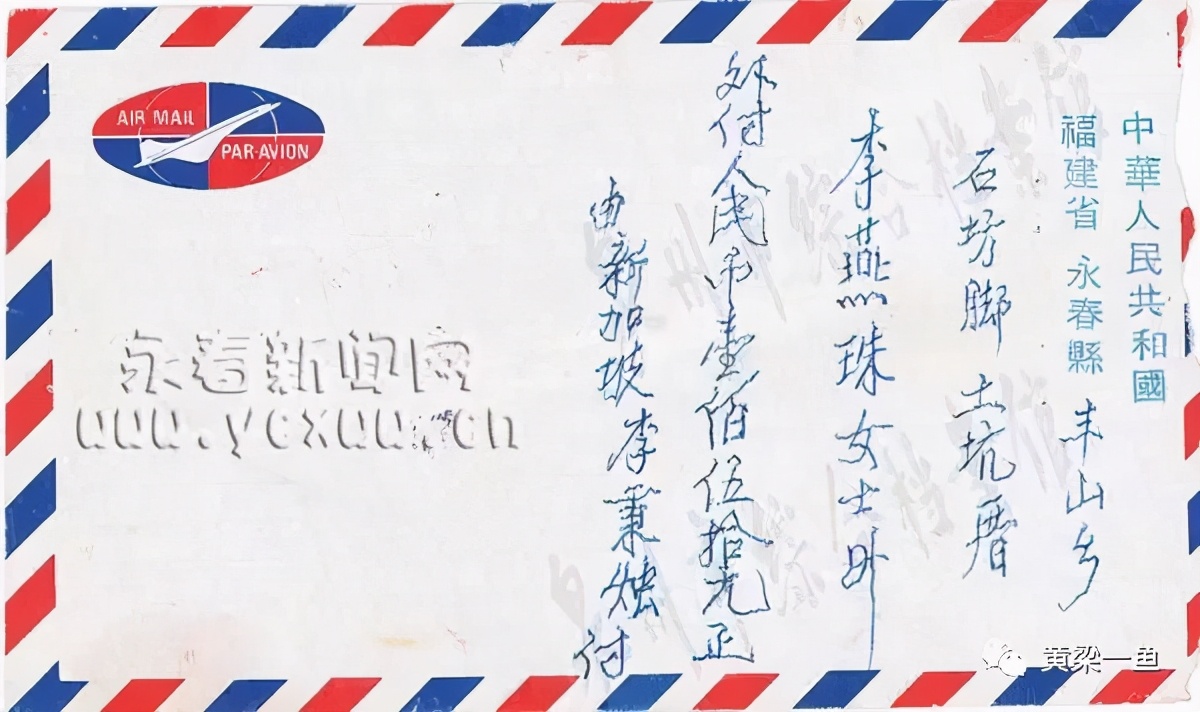 中華人民共和國
福建省 永春縣 丰山乡
石坊脚 土坑厝
李燕珠女士收
外付人民币壹佰伍拾元正
由新加坡李秉燃付
AIR MAIL
PAR-AVION
永春新闻网
www.ycxww.cn
黄梁一鱼